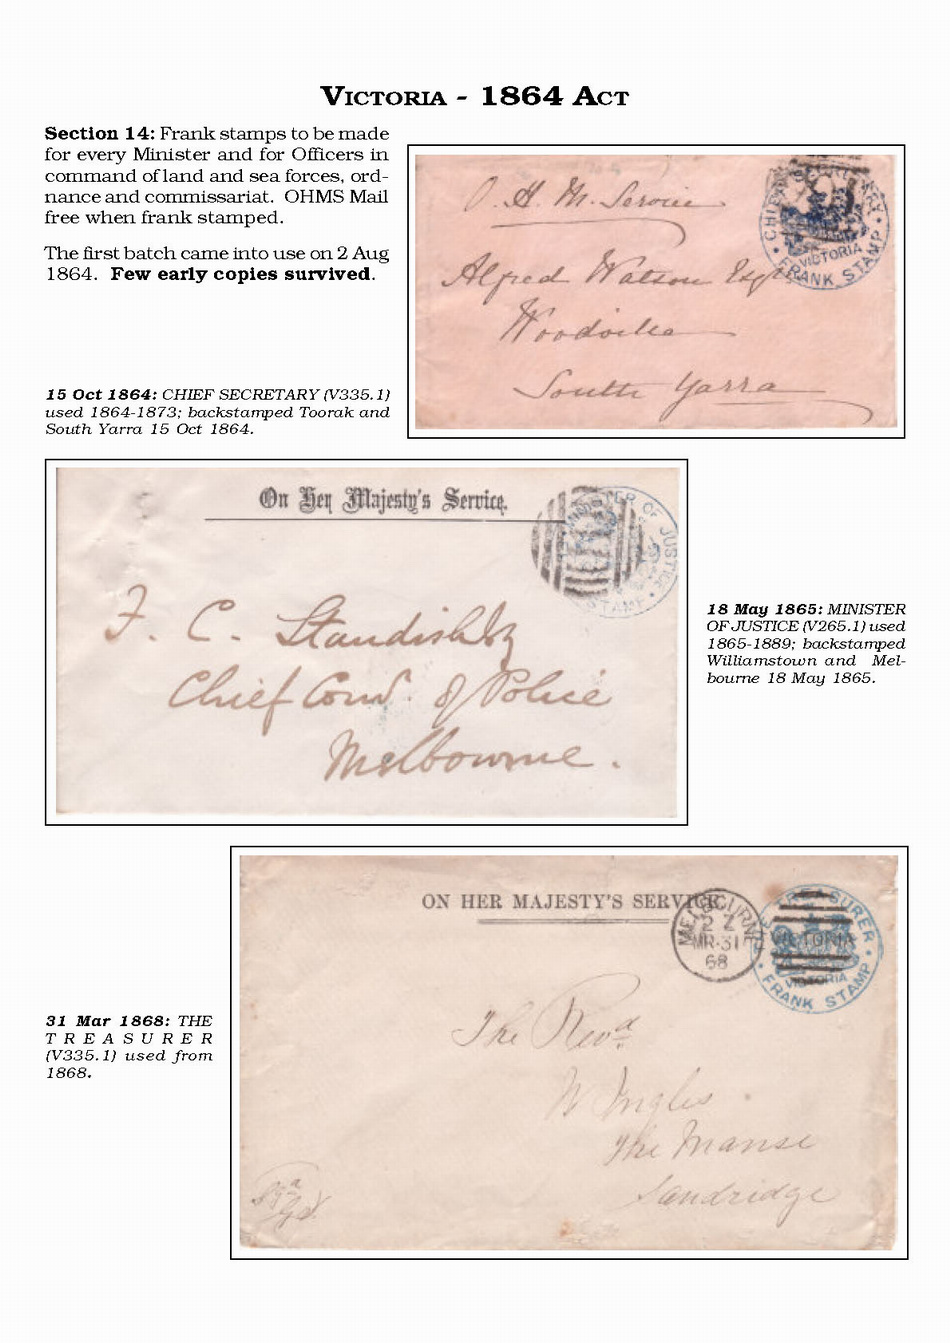 VICTORIA - 1864 ACT
Section 14: Frank stamps to be made
for every Minister and for Officers in
command of land and sea forces, ord-
nance and commissariat. OHMS Mail
free when frank stamped.
The first batch came into use on 2 Aug
1864. Few early copies survived.
O. H. M. Service
Alfred Watson Esqre
Woodville
South Yarra
CHIEF SECRETARY
VICTORIA
FRANK STAMP
15 Oct 1864: CHIEF SECRETARY (V335.1)
used 1864-1873; backstamped Toorak and
South Yarra 15 Oct 1864.
On Her Majesty's Service.
MINISTER OF JUSTICE
STAMP
F. C. Standish Esq
Chief Comr. of Police
Melbourne.
18 May 1865: MINISTER
OF JUSTICE (V265.1) used
1865-1889; backstamped
Williamstown and Mel-
bourne 18 May 1865.
ON HER MAJESTY'S SERVICE
MELBOURNE
2 Z
MR-31
68
TREASURER
VICTORIA
VICTORIA
FRANK STAMP
The Revd
W Ingles
The Manse
Sandridge
31 Mar 1868: THE
TREASURER
(V335.1) used from
1868.